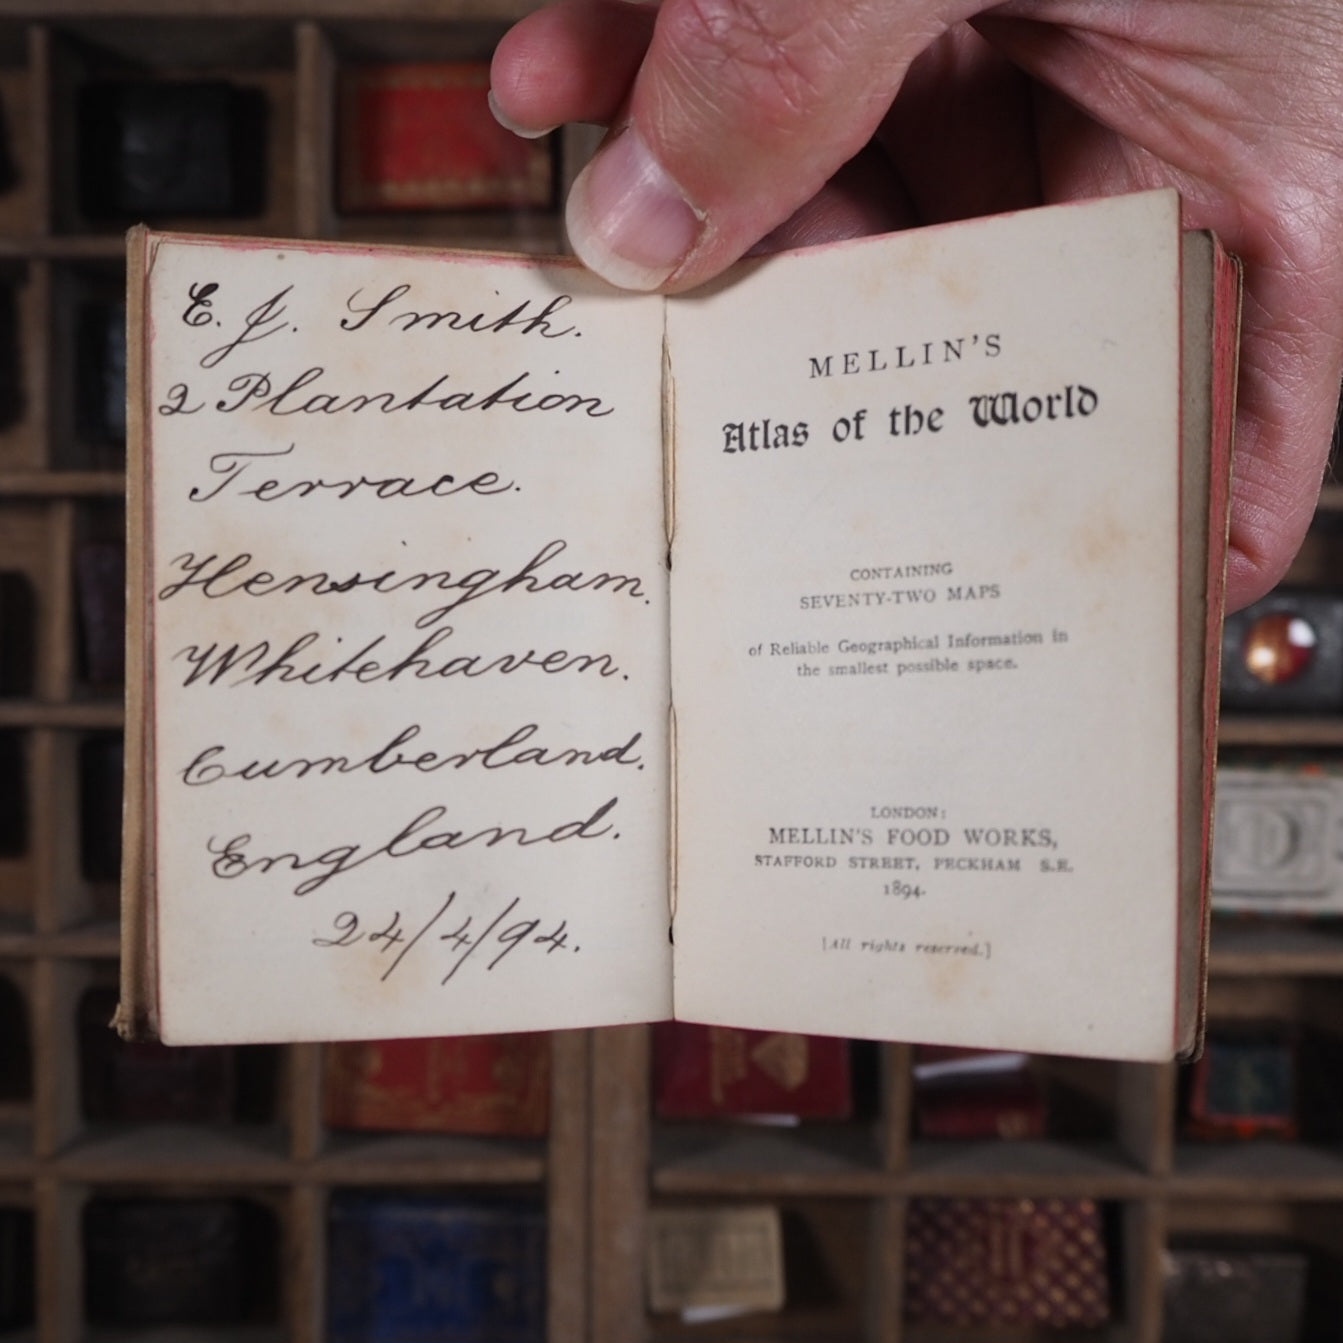 E. J. Smith.
2 Plantation
Terrace.
Hensingham.
Whitehaven.
Cumberland.
England.
24/4/94.
MELLIN'S
Atlas of the World
CONTAINING
SEVENTY-TWO MAPS
of Reliable Geographical Information in
the smallest possible space.
LONDON:
MELLIN'S FOOD WORKS,
STAFFORD STREET, PECKHAM S.E.
1894.
[All rights reserved.]